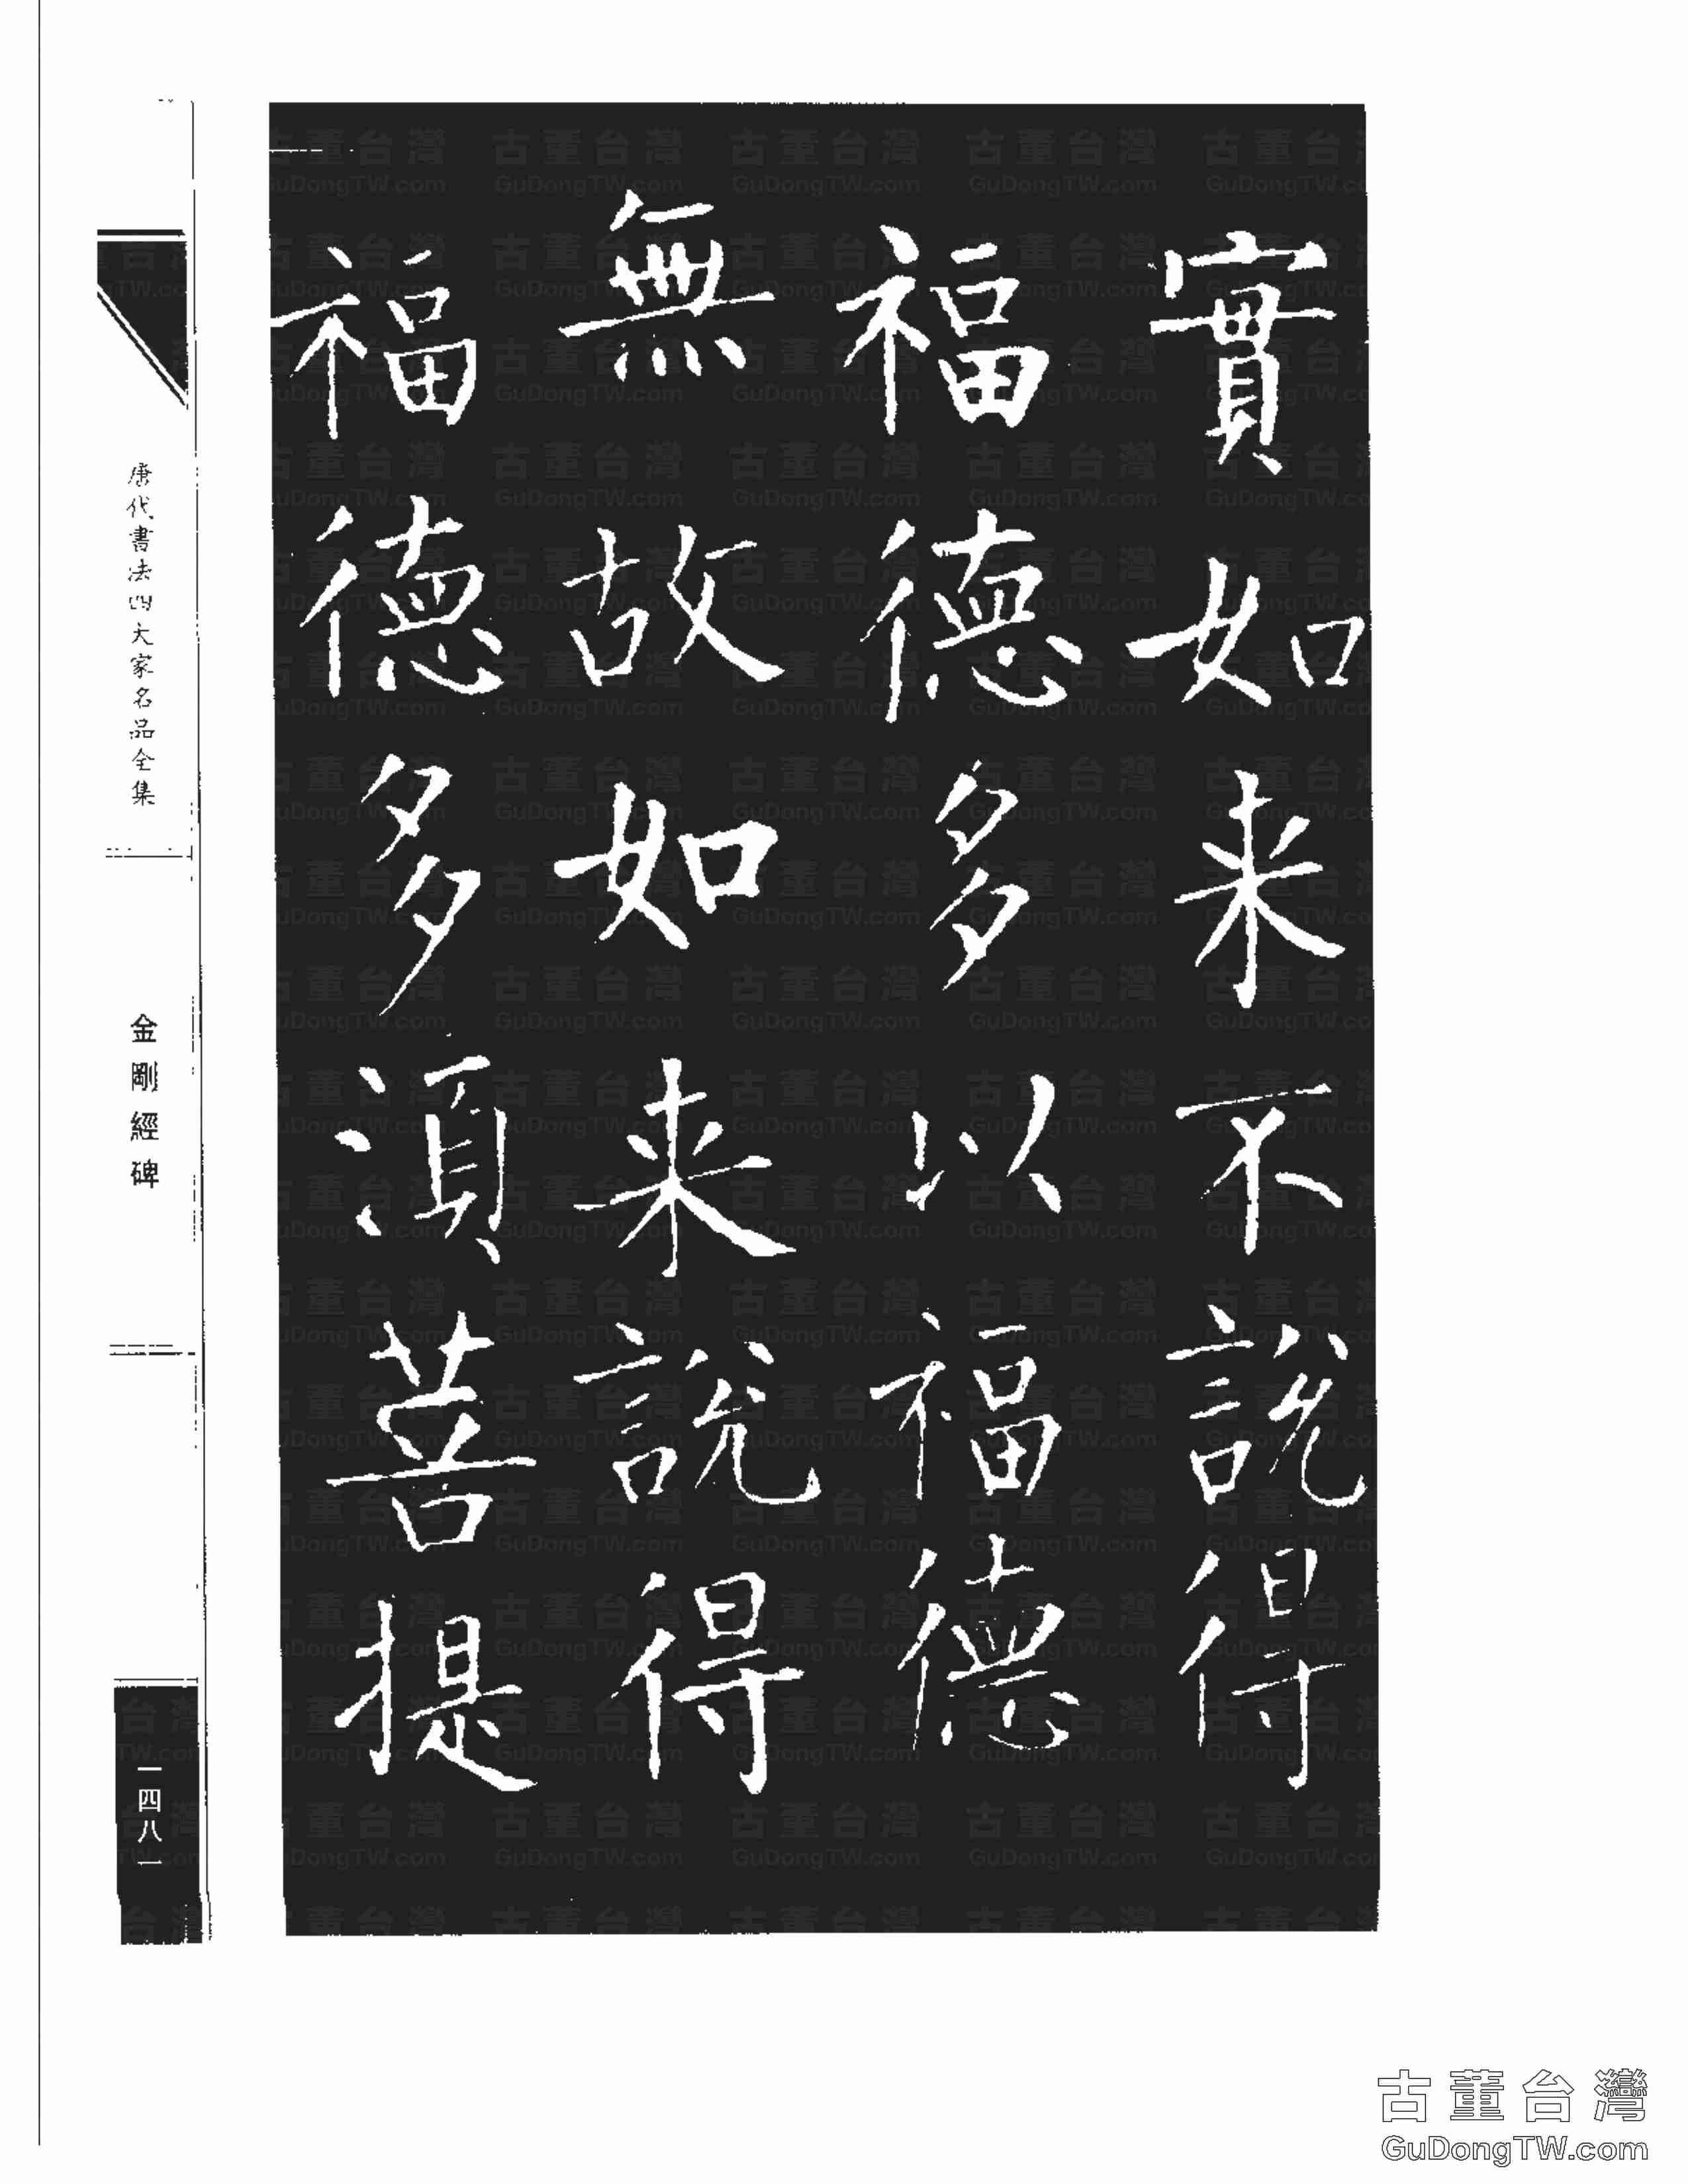 實如来不說得
福德多以福德
無故如来說得
福德多湏菩提
唐代書法四大家名品全集
金剛經碑
一四八一
古董台灣
GuDongTW.com